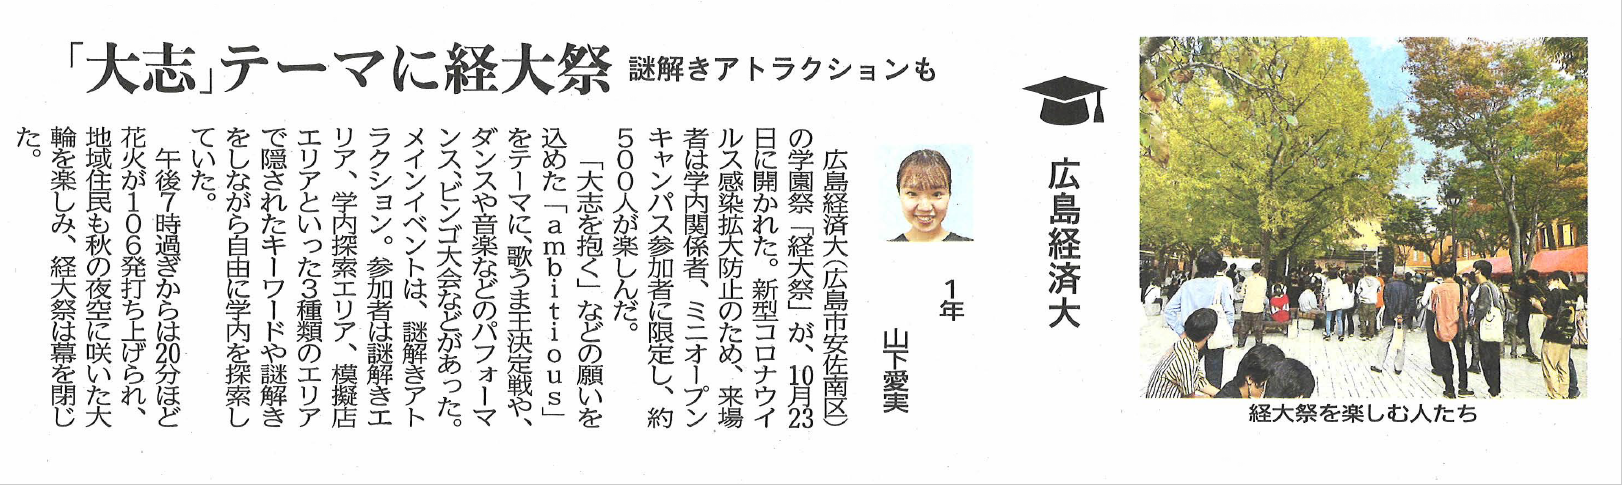 「大志」テーマに経大祭 謎解きアトラクションも
広島経済大
1年
山下愛実
広島経済大(広島市安佐南区)
の学園祭「経大祭」が、10月23
日に開かれた。新型コロナウイ
ルス感染拡大防止のため、来場
者は学内関係者、ミニオープン
キャンパス参加者に限定し、約
500人が楽しんだ。
「大志を抱く」などの願いを
込めた「ambitious」
をテーマに、歌うま王決定戦や、
ダンスや音楽などのパフォーマ
ンス、ビンゴ大会などがあった。
メインイベントは、謎解きアト
ラクション。参加者は謎解きエ
リア、学内探索エリア、模擬店
エリアといった3種類のエリア
で隠されたキーワードや謎解き
をしながら自由に学内を探索し
ていた。
午後7時過ぎからは20分ほど
花火が106発打ち上げられ、
地域住民も秋の夜空に咲いた大
輪を楽しみ、経大祭は幕を閉じ
た。
経大祭を楽しむ人たち